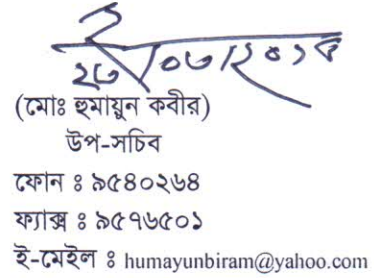 (মোঃ হুমায়ুন কবীর)
উপ-সচিব
ফোন ঃ ৯৫৪০২৬৪
ফ্যাক্স ঃ ৯৫৭৬৫০১
ই-মেইল ঃ humayunbiram@yahoo.com